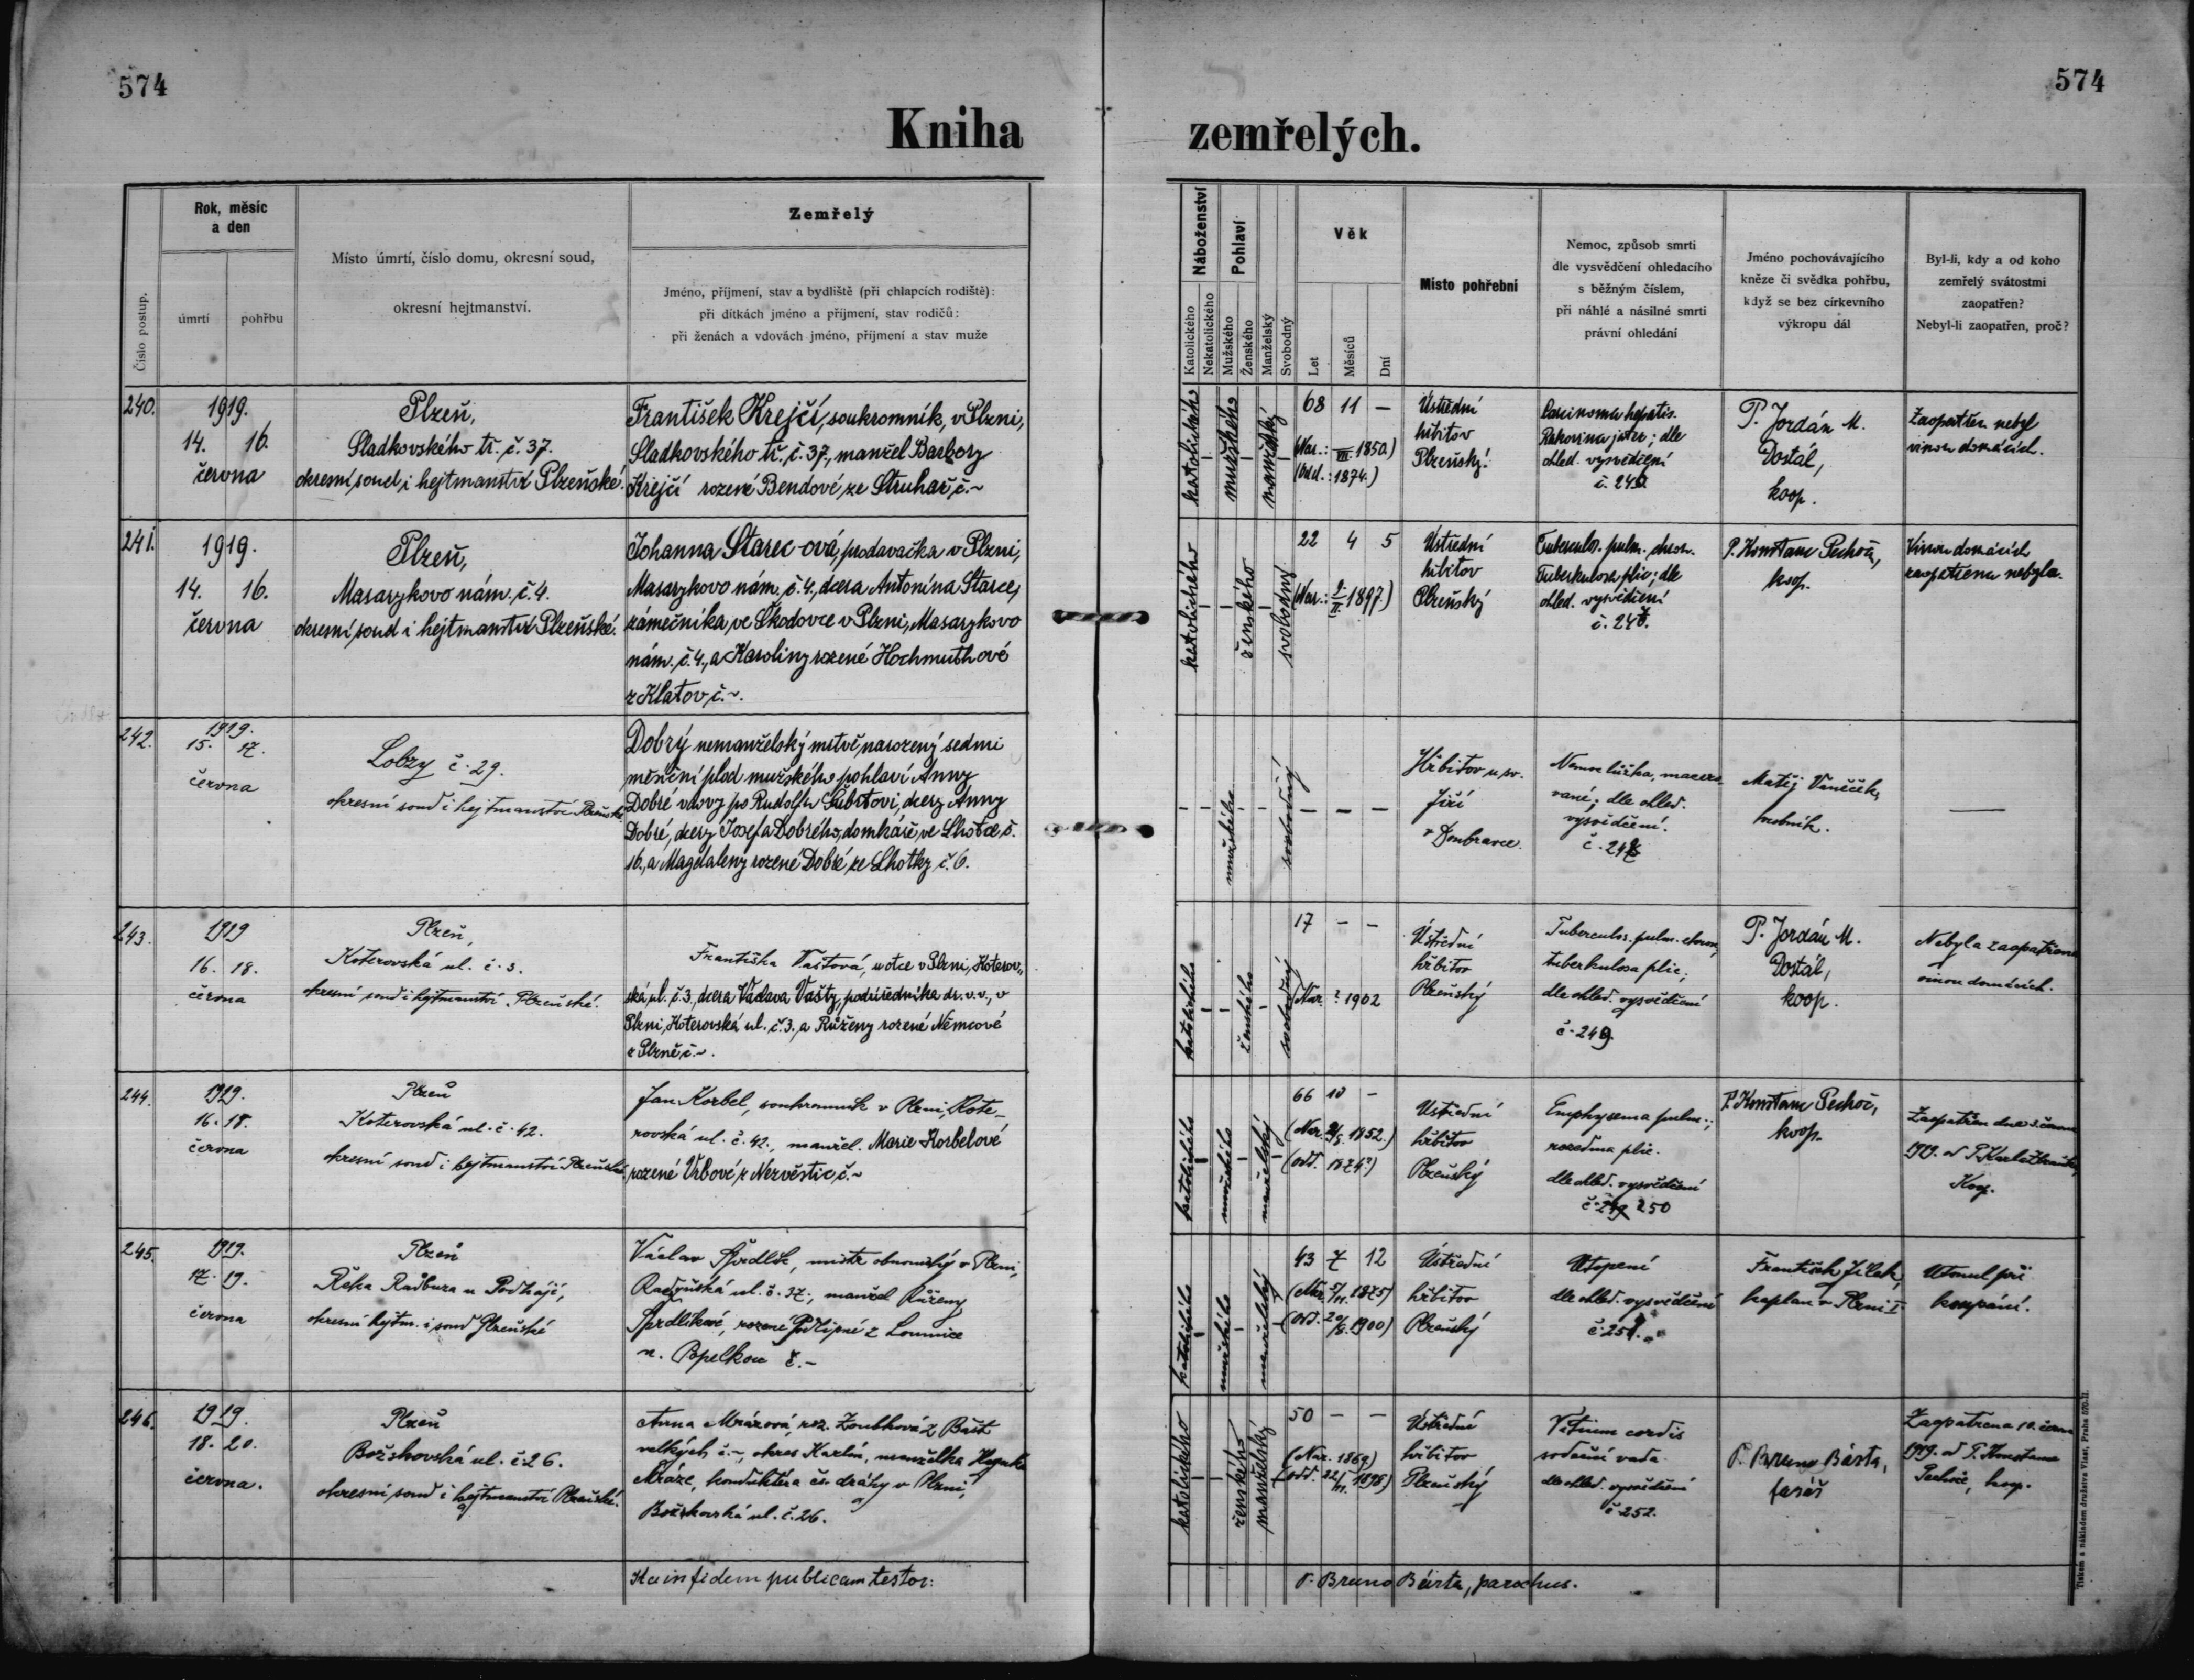 574
574
Kniha
zemřelých.
Číslo postup.
Rok, měsíc
a den
úmrtí
pohřbu
Místo úmrtí, číslo domu, okresní soud,
okresní hejtmanství.
Zemřelý
Jméno, příjmení, stav a bydliště (při chlapcích rodiště):
při dítkách jméno a příjmení, stav rodičů:
při ženách a vdovách jméno, příjmení a stav muže
Náboženství
Katolického
Nekatolického
Pohlaví
Mužského
Ženského
Manželský
Svobodný
Věk
Let
Měsíců
Dní
Místo pohřební
Nemoc, způsob smrti
dle vysvědčení ohledacího
s běžným číslem,
při náhlé a násilné smrti
právní ohledání
Jméno pochovávajícího
kněze či svědka pohřbu,
když se bez církevního
výkropu dál
Byl-li, kdy a od koho
zemřelý svátostmi
zaopatřen?
Nebyl-li zaopatřen, proč?
240.
1919.
14. 16.
června
Plzeň,
Sladkovského tř. č. 37.
okresní soud i hejtmanství Plzeňské.
František Krejčí, soukromník, v Plzni,
Sladkovského tř. č. 37, manžel Barbory
Krejčí rozené Bendové, ze Struhař, č.~
katolického
mužského
manželský
68 11 —
(Nar.: VII. 1850.)
(Odd.: 1874.)
Ústřední
hřbitov
Plzeňský.
Carcinoma hepatis.
Rakovina jater; dle
ohled. vysvědčení
P. Jordán M.
Dostál,
koop.
Zaopatřen nebyl
vinou domácích.
241.
1919.
14. 16.
června
Plzeň,
Masarykovo nám. č. 4.
okresní soud i hejtmanství Plzeňské.
Johanna Starec-ová, prodavačka v Plzni,
Masarykovo nám. č. 4., dcera Antonína Starce,
zámečníka, ve Škodovce v Plzni, Masarykovo
nám. č. 4., a Karoliny rozené Hochmuthové
z Klatov, č.~.
katolického
ženského
svobodný
22 4 5
(Nar.: 9/II. 1897.)
Ústřední
hřbitov
Plzeňský
Tuberculos. pulm. chron.
Tuberkulosa plic; dle
ohled. vysvědčení
P. Konstanc Pechoč,
koop.
Vinou domácích
zaopatřena nebyla.
242.
1919.
15. 17.
června
Lobzy č. 29.
okresní soud i hejtmanství Plzeňské.
Dobrý nemanželský mrtvě narozený sedmi
měsíční plod mužského pohlaví Anny
Dobré vdovy po Rudolfu Šubrtovi, dcery Anny
Dobré, dcery Josefa Dobrého, domkáře ve Lhotce, č.
16., a Magdaleny rozené Dobré ze Lhotky č. 6.
mužského
svobodný
— — —
Hřbitov u sv.
Jiří
v Doubravce.
vané; dle ohled.
vysvědčení.
Matěj Vaněček,
hrobník.
—
243.
1919
16. 18.
června
Plzeň,
Koterovská ul. č. 3.
okresní soud i hejtmanství Plzeňské.
Františka Vaštová, u otce v Plzni, Koterov-
ská ul. č. 3., dcera Václava Vašty, podúředníka dr. v. v., v
Plzni, Koterovská ul. č. 3., a Růženy rozené Němcové
z Plzně, č.~.
katolického
ženského
svobodný
17 — —
Nar. ? 1902
Ústřední
hřbitov
Plzeňský
Tuberculos. pulm. chron.,
tuberkulosa plic;
dle ohled. vysvědčení
č. 249.
P. Jordán M.
Dostál,
koop.
Nebyla zaopatřena
vinou domácích.
244.
1919.
16. 18.
června
Plzeň
Koterovská ul. č. 42.
okresní soud i hejtmanství Plzeňské.
Jan Korbel, soukromník v Plzni, Kote-
rovská ul. č. 42., manžel Marie Korbelové
rozené Vrbové z Nezvěstic, č.~
katolického
mužského
manželský
66 10 —
1852.)
Ústřední
hřbitov
Plzeňský
Emphysema pulm.;
rozedma plic.
dle ohled. vysvědčení
č. 249 250
P. Konstanc Pechoč,
koop.
Zaopatřen dne 3. června
1919. od P. Karla
Koop.
245.
1919.
17. 19.
června
Plzeň
Řeka Radbuza u Podhájí,
okresní hejtm. i soud Plzeňské
Václav Šprdlík, mistr obuvnický v Plzni,
Radyňská ul. č. 37., manžel Růženy
Šprdlíkové, rozené Podlipné z Lomnice
n. Popelkou č.–
katolického
mužského
manželský
43 7 12
1875)
1900)
Ústřední
hřbitov
Plzeňský
Utopení
dle ohled. vysvědčení
č. 251.
František Jílek,
kaplan v Plzni
Utonul při
koupání.
246.
1919.
18. 20.
června.
Plzeň
Božkovská ul. č. 26.
okresní soud i hejtmanství Plzeňské.
Anna Mrázová, roz. Zoubková z Bašt
velkých č.~, okres Karlín, manželka Hynka
Mráze, konduktéra čs. dráhy v Plzni,
Božkovská ul. č. 26.
katolického
ženského
manželský
50 — —
(Nar. 1869)
1898)
Ústřední
hřbitov
Plzeňský
Vitium cordis
srdeční vada
dle ohled. vysvědčení
č. 252.
P. Bruno Bárta,
farář
Zaopatřena 10. června
1919. od P. Konstance
Pechoče, koop.
Ita in fidem publicam testor:
P. Bruno Bárta, parochus.
Tiskem a nákladem družstva Vlast, Praha 570-II.